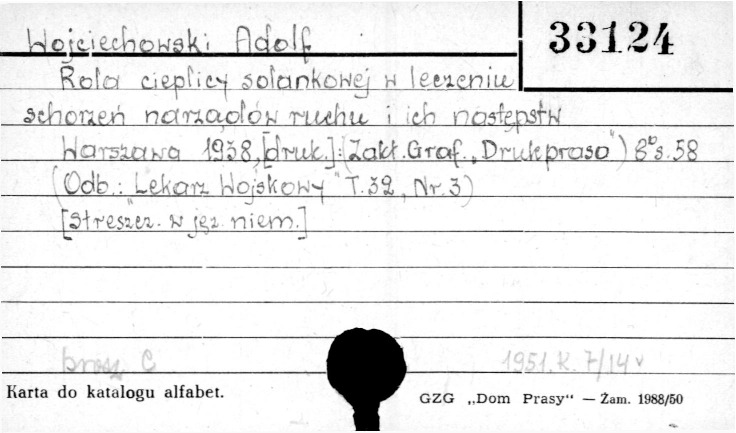 Wojciechowski Adolf
33124
Rola cieplicy solankowej w leczeniu
schorzeń narządów ruchu i ich następstw
Warszawa 1938, [druk.]: (Zakł. Graf. „Drukprasa”) 8° s. 58
(Odb.: „Lekarz Wojskowy” T. 32, Nr. 3)
[Streszcz. w jęz. niem.]
brosz. C
1951. K. 7/14 v
Karta do katalogu alfabet.
GZG „Dom Prasy“ — Żam. 1988/50